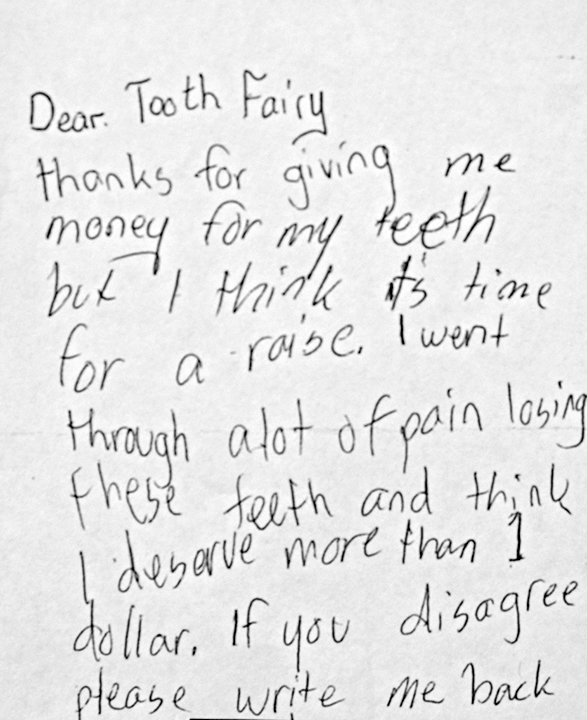 Dear. Tooth Fairy
thanks for giving me
money for my teeth
but I think it's time
for a raise. I went
through alot of pain losing
these teeth and think
I deserve more than 1
dollar. If you disagree
please write me back